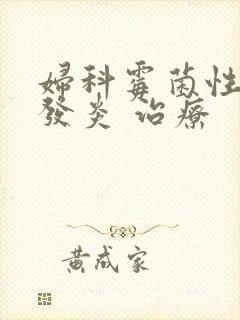 婦科霉菌性
發炎 治療
黄成家